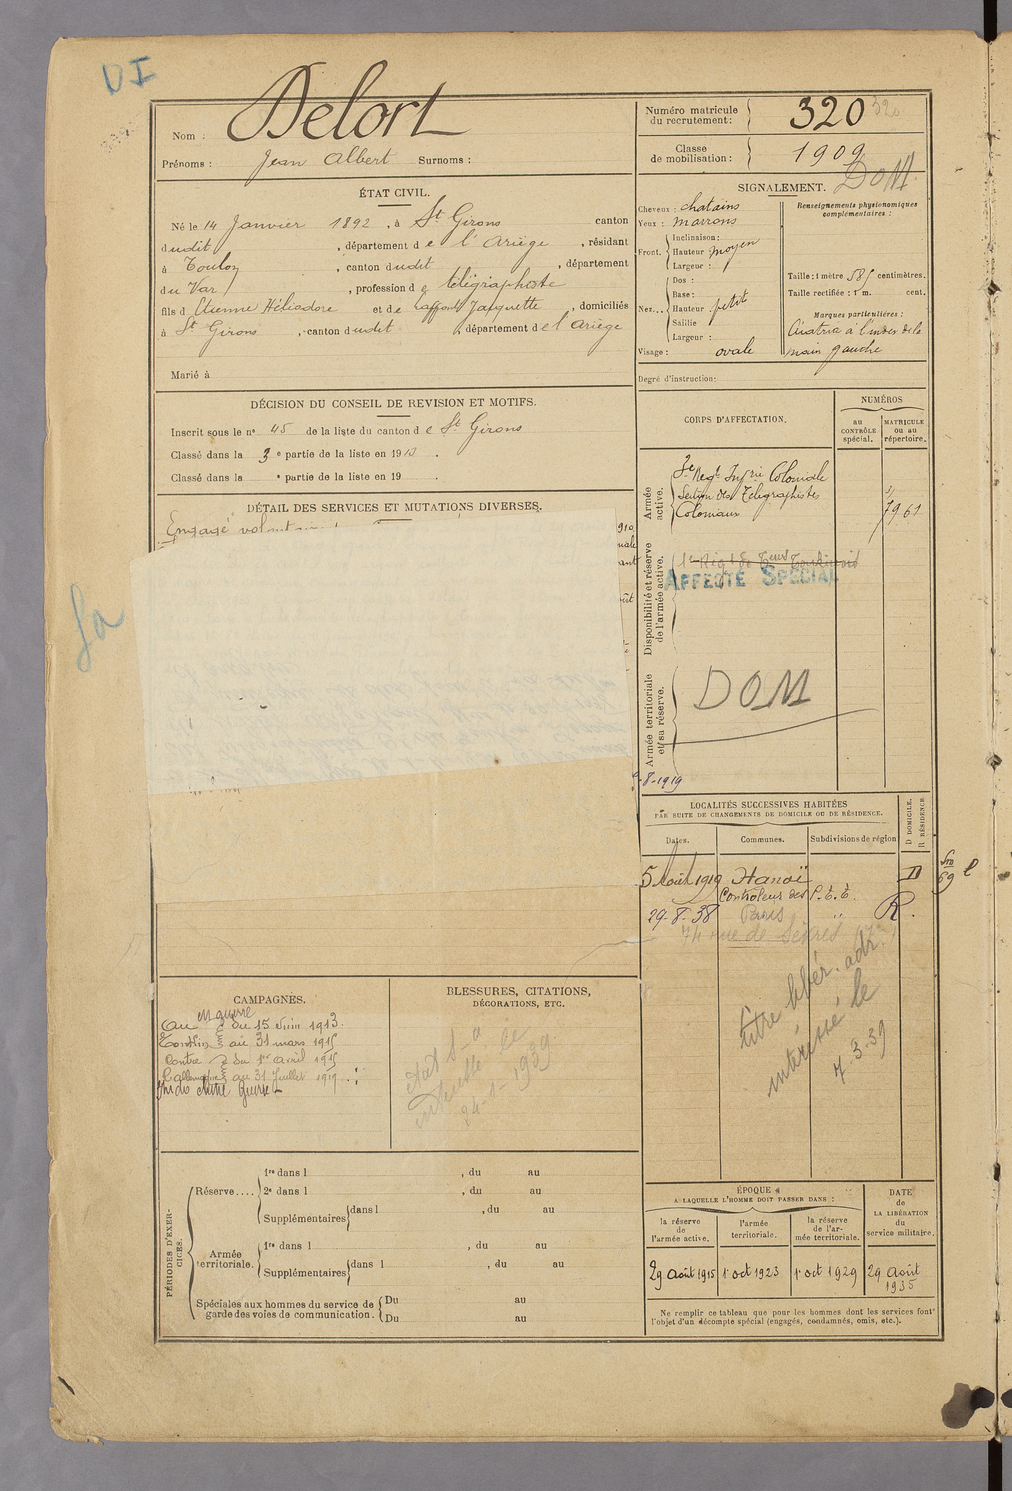 DI
Nom : Delort
Prénoms : Jean Albert Surnoms :
Numéro matricule
du recrutement : 320
320
Classe
de mobilisation : 1909
DOM
ÉTAT CIVIL.
Né le 14 Janvier 1892, à St Girons canton
dudit, département de l'Ariège, résidant
à Toulon, canton dudit, département
du Var, profession de télégraphiste
fils d'Etienne Héliodore et de Laffont Jacquette, domiciliés
à St Girons, canton dudit, département de l'Ariège
Marié à
SIGNALEMENT.
Cheveux : chatains
Yeux : marrons
Front. Inclinaison :
Hauteur moyen
Largeur :
Nez... Dos :
Base :
Hauteur petit
Saillie
Largeur :
Visage : ovale
Renseignements physionomiques
complémentaires :
Taille : 1 mètre 585 centimètres.
Taille rectifiée : 1 m. cent.
Marques particulières :
Cicatrice à l'index de la
main gauche
Degré d'instruction :
DÉCISION DU CONSEIL DE REVISION ET MOTIFS.
Inscrit sous le nº 45 de la liste du canton de St Girons
Classé dans la 3e partie de la liste en 1913.
Classé dans la e partie de la liste en 19 .
DÉTAIL DES SERVICES ET MUTATIONS DIVERSES.
Engagé
CORPS D'AFFECTATION.
NUMÉROS
au
CONTRÔLE
spécial.
MATRICULE
ou au
répertoire.
Armée
active.
3e Regt Infrie Coloniale
Section des Télégraphistes
Coloniaux
7961
Disponibilité et réserve
de l'armée active.
AFFECTÉ SPÉCIAL
Armée territoriale
et sa réserve.
DOM
-8-1919
LOCALITÉS SUCCESSIVES HABITÉES
PAR SUITE DE CHANGEMENTS DE DOMICILE OU DE RÉSIDENCE.
Dates.
Communes.
Subdivisions de région
D DOMICILE.
R RÉSIDENCE.
5 Août 1919 Hanoï D
Controleur des P.T.T.
29-8-38 Paris " R.
74 rue de Sèvres
titre libér. adr.
intéressé le
7-3-39
Sa
CAMPAGNES.
en guerre
Au Tonkin du 15 Juin 1913
au 31 mars 1915
Contre l'allemagne du 1er avril 1915
au 31 Juillet 1919
BLESSURES, CITATIONS,
DÉCORATIONS, ETC.
PÉRIODES D'EXERCICES.
Réserve.... 1re dans l , du au
2e dans l , du au
Supplémentaires dans l , du au
Armée
territoriale. 1re dans l , du au
Supplémentaires dans l , du au
Spéciales aux hommes du service de
garde des voies de communication. Du au
Du au
ÉPOQUE
A LAQUELLE L'HOMME DOIT PASSER DANS :
la réserve
de
l'armée active.
l'armée
territoriale.
la réserve
de l'ar-
mée territoriale.
DATE
de
LA LIBÉRATION
du
service militaire.
29 Août 1915
1 oct 1923
1 oct 1929
29 Août
1935
Ne remplir ce tableau que pour les hommes dont les services font
l'objet d'un décompte spécial (engagés, condamnés, omis, etc.).